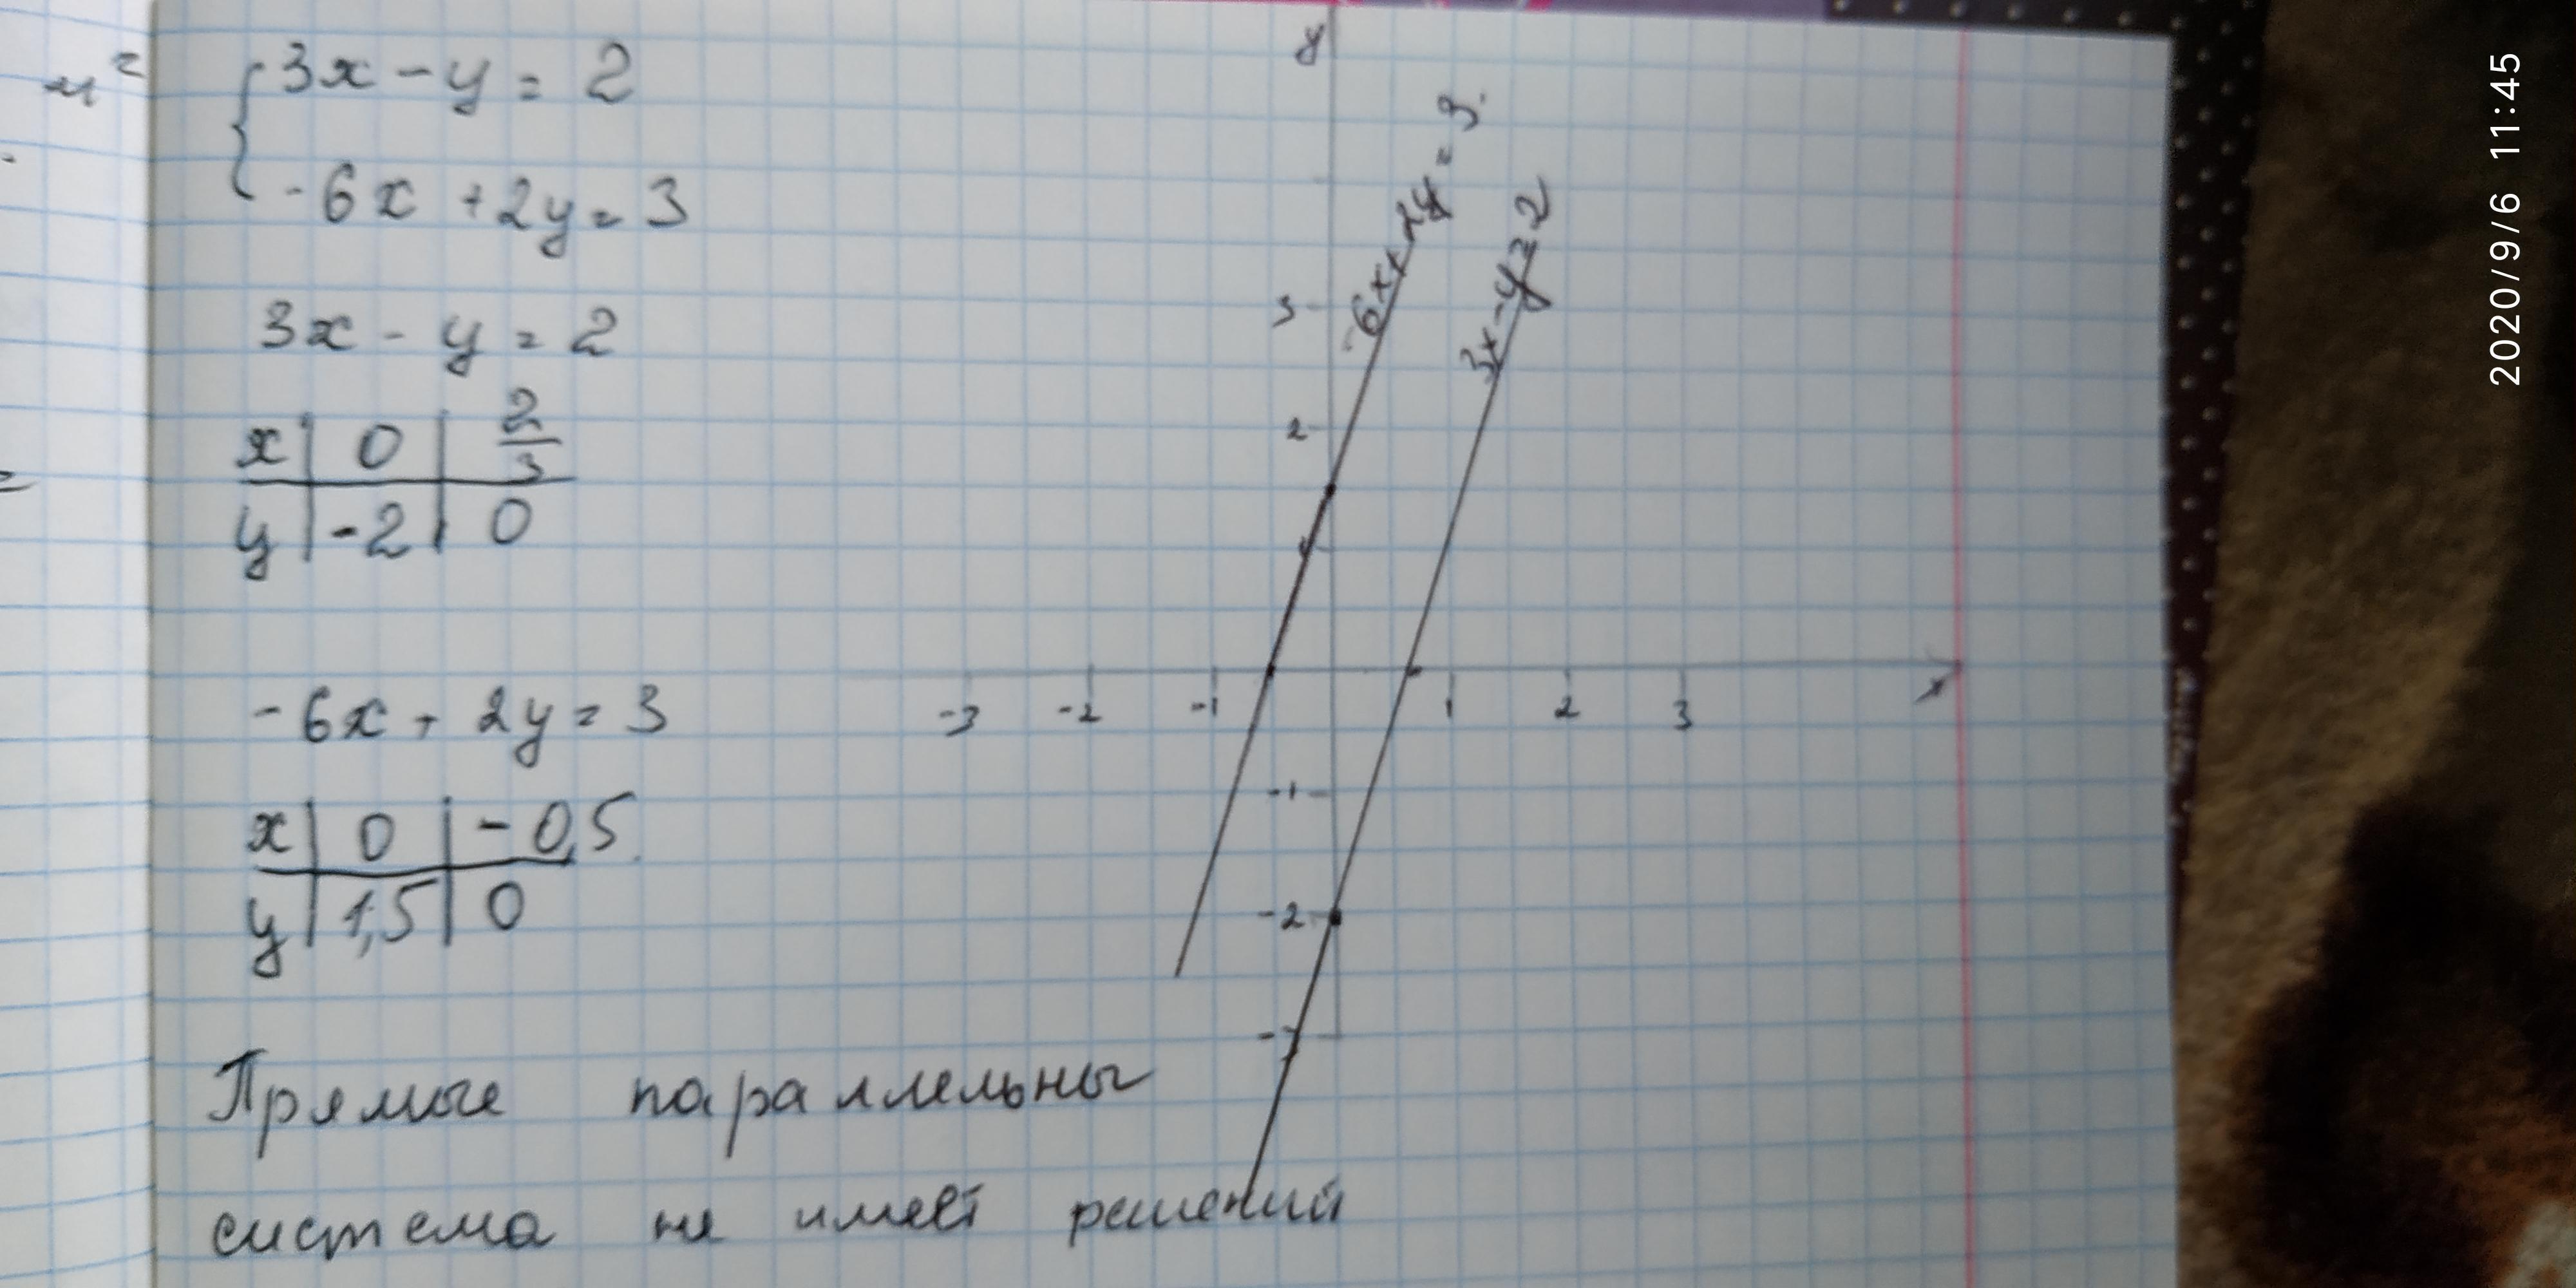 3x - y = 2
-6x + 2y = 3
3x - y = 2
x | 0 | 2/3
y | -2 | 0
-6x + 2y = 3
x | 0 | -0,5
y | 1,5 | 0
Прямые параллельны
система не имеет решений
y
-6x+2y=3
3x-y=2
3
2
-3 -2 -1 1 2 3 x
-1
-2
-3
2020/9/6 11:45